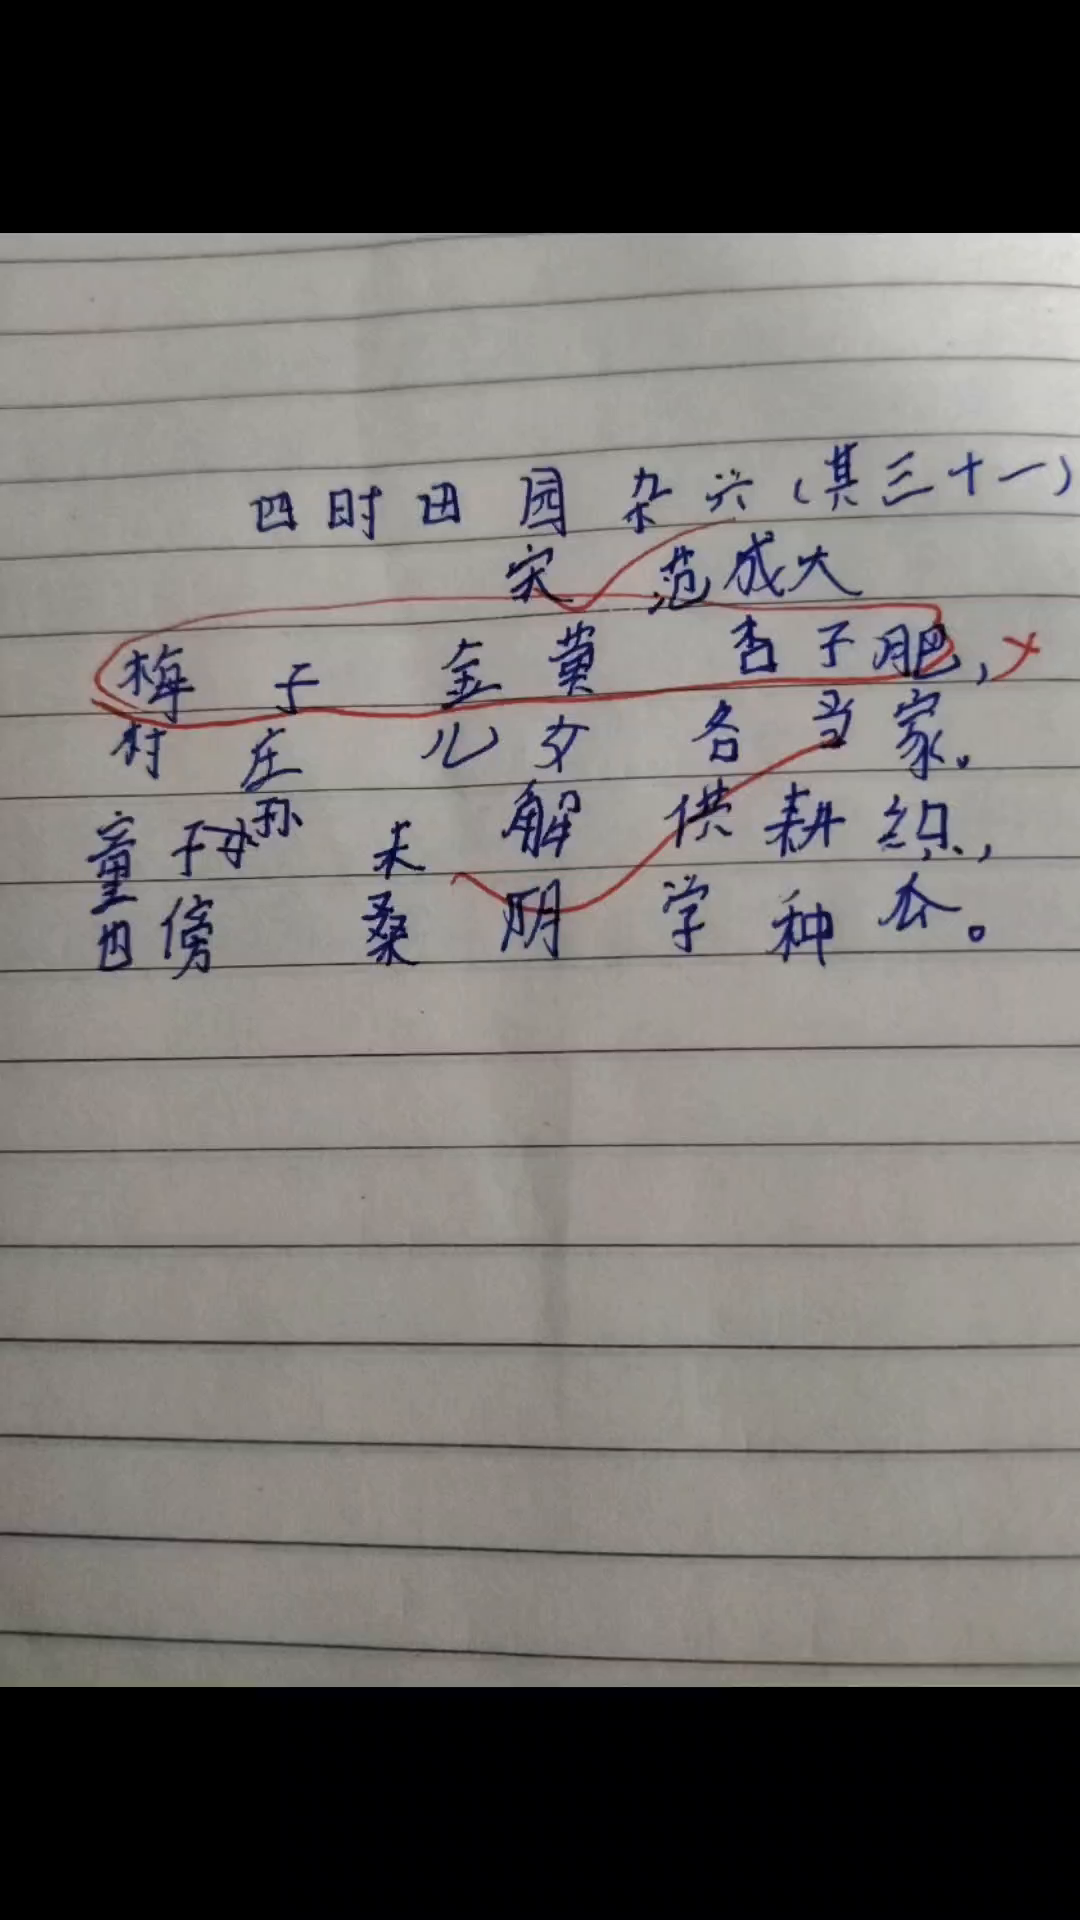 四时田园杂兴(其三十一)
宋 范成大
梅子 金黄 杏子肥,
村庄 儿女 各当家。
童孙 未解 供耕织,
也傍 桑阴 学种瓜。